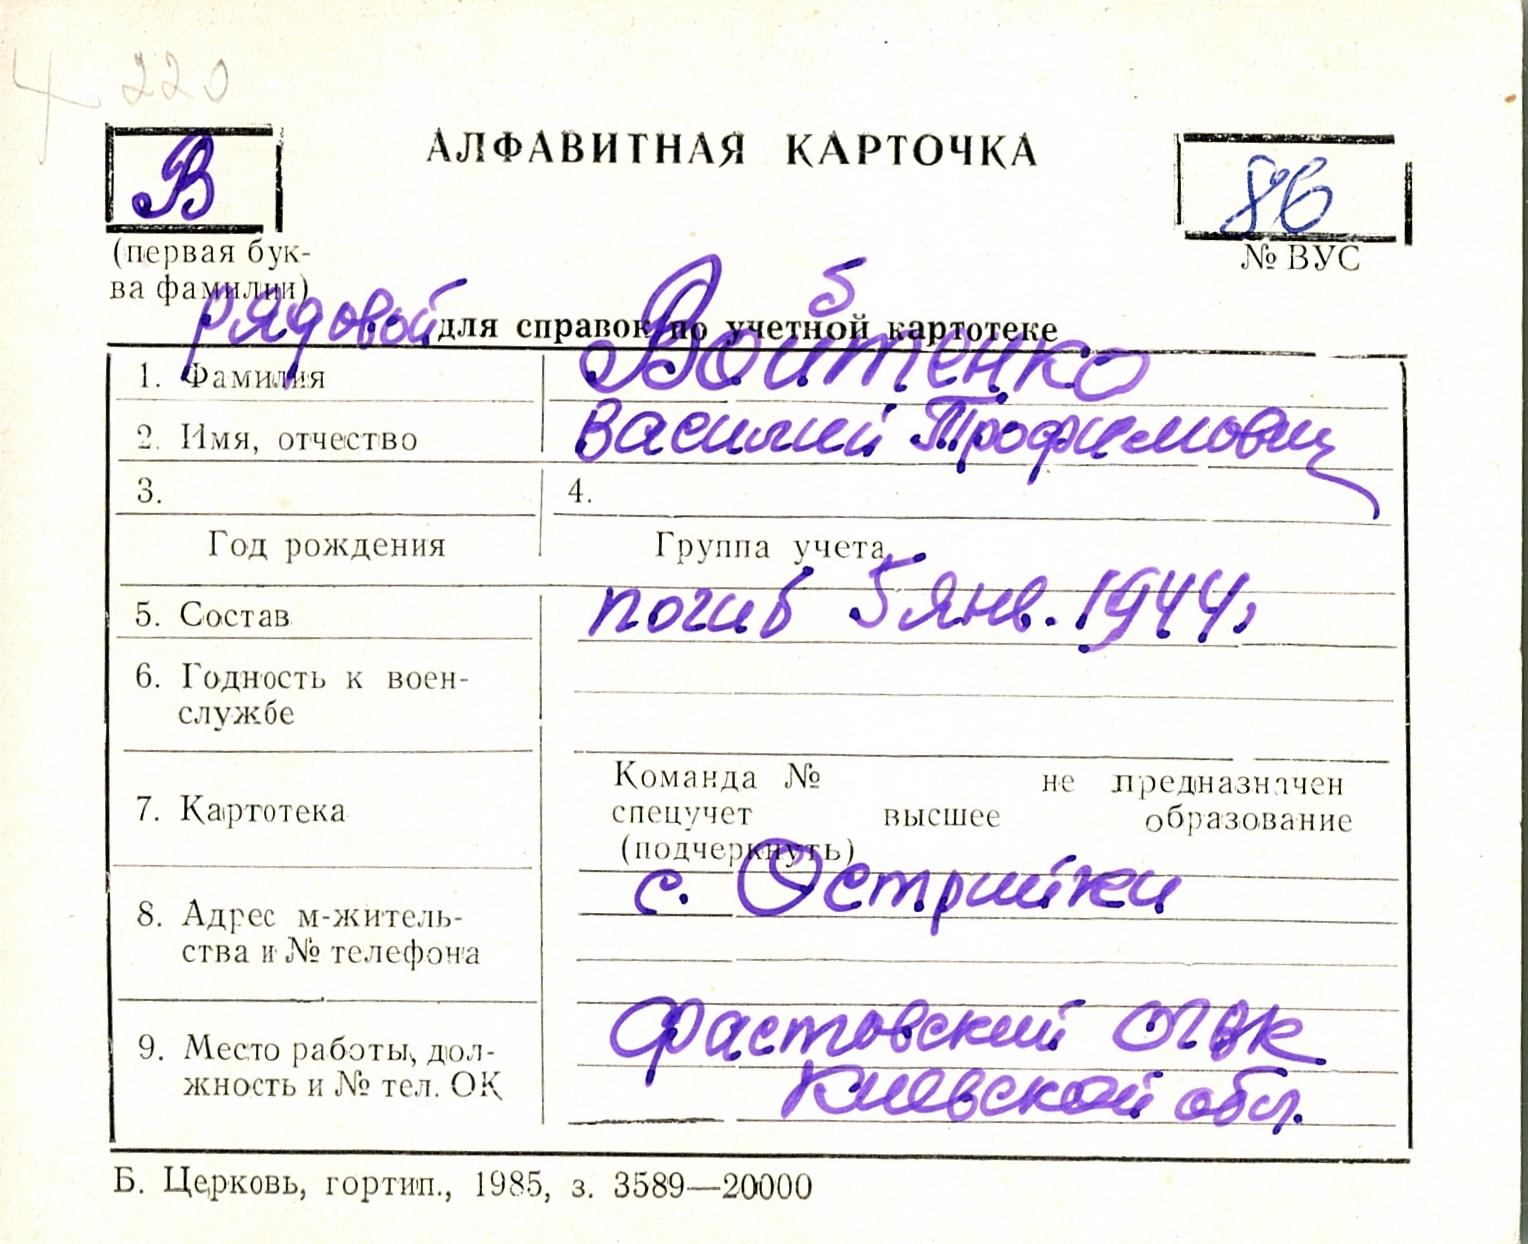 4 220
АЛФАВИТНАЯ КАРТОЧКА
В
86
(первая бук-
ва фамилии)
№ ВУС
рядовой
б
для справок по учетной картотеке
1. Фамилия
Войтенко
2. Имя, отчество
Василий Трофимович
3.
4.
Год рождения
Группа учета
5. Состав
погиб 5 янв. 1944г
6. Годность к воен-
службе
7. Картотека
Команда № не предназначен
спецучет высшее образование
(подчеркнуть)
8. Адрес м-житель-
ства и № телефона
с. Острийки
9. Место работы, дол-
жность и № тел. ОК
Фастовский ОГВК
Киевской обл.
Б. Церковь, гортип., 1985, з. 3589—20000